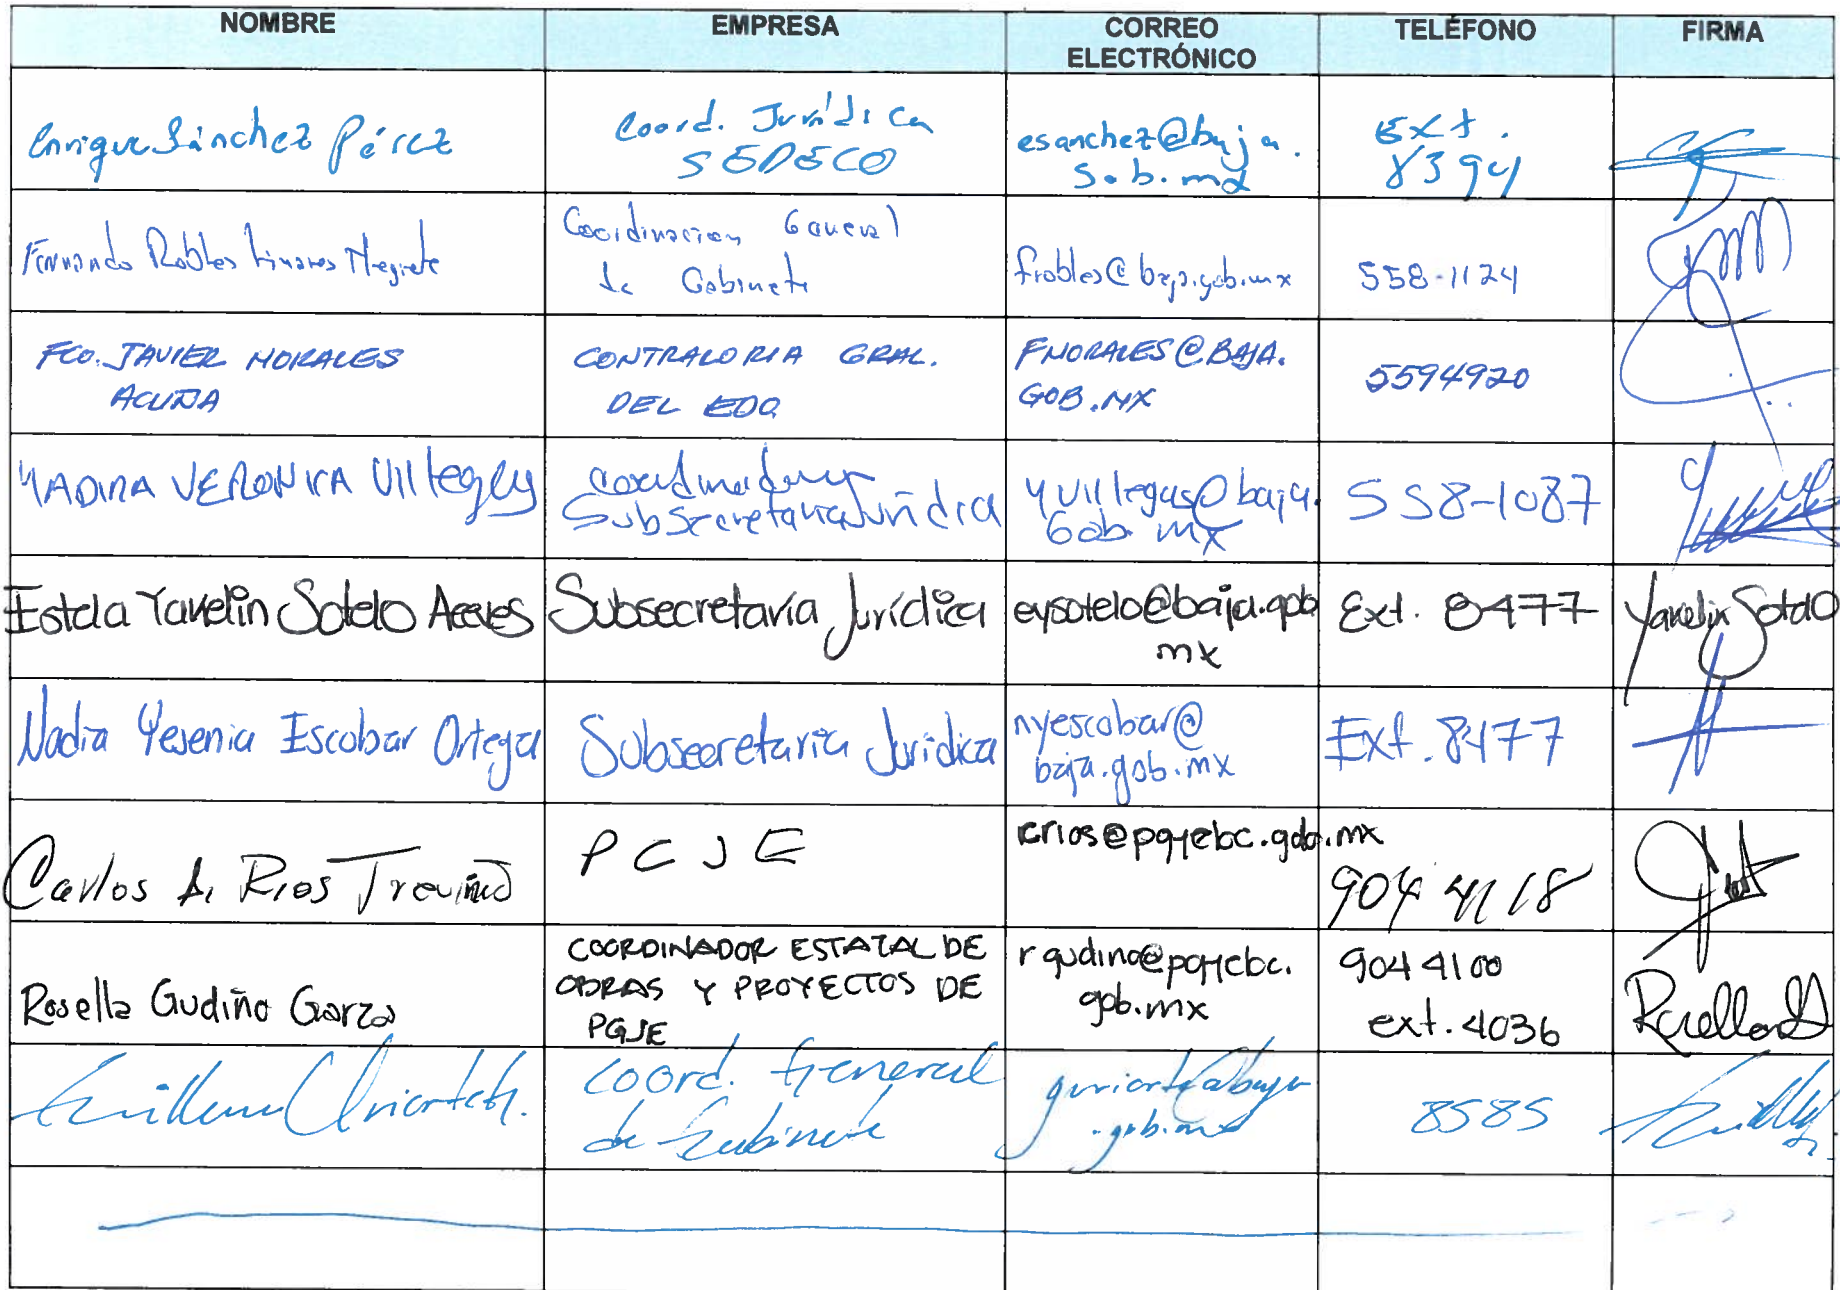 NOMBRE
EMPRESA
CORREO
ELECTRÓNICO
TELÉFONO
FIRMA
Enrique Sánchez Pérez
Coord. Jurídica
SEDECO
esanchez@baja.
gob.mx
Ext.
8394
Fernando Robles Linares Negrete
Coordinacion General
de Gabinete
frobles@baja.gob.mx
558-1124
FCO. JAVIER MORALES
ACUÑA
CONTRALORIA GRAL.
DEL EDO.
FMORALES@BAJA.
GOB.MX
5594920
YADIRA VERONICA Villegas
Coordinadora
Subsecretaria Jurídica
yvillegas@baja.
Gob. mx
558-1087
Estela Yavelin Sotelo Aceves
Subsecretaría Jurídica
eysotelo@baja.gob
mx
Ext. 8477
Yavelin Sotelo
Nadia Yesenia Escobar Ortega
Subsecretaria Jurídica
nyescobar@
baja.gob.mx
Ext. 8477
Carlos A. Rios Treviño
PGJE
crios@pgjebc.gob.mx
904 4118
Rosella Gudiño Garza
COORDINADOR ESTATAL DE
OBRAS Y PROYECTOS DE
PGJE
rgudino@pgjebc.
gob.mx
904 4100
ext. 4036
Guillermo Uriarte
Coord. General
de Gabinete
guriarte@baja
.gob.mx
8585